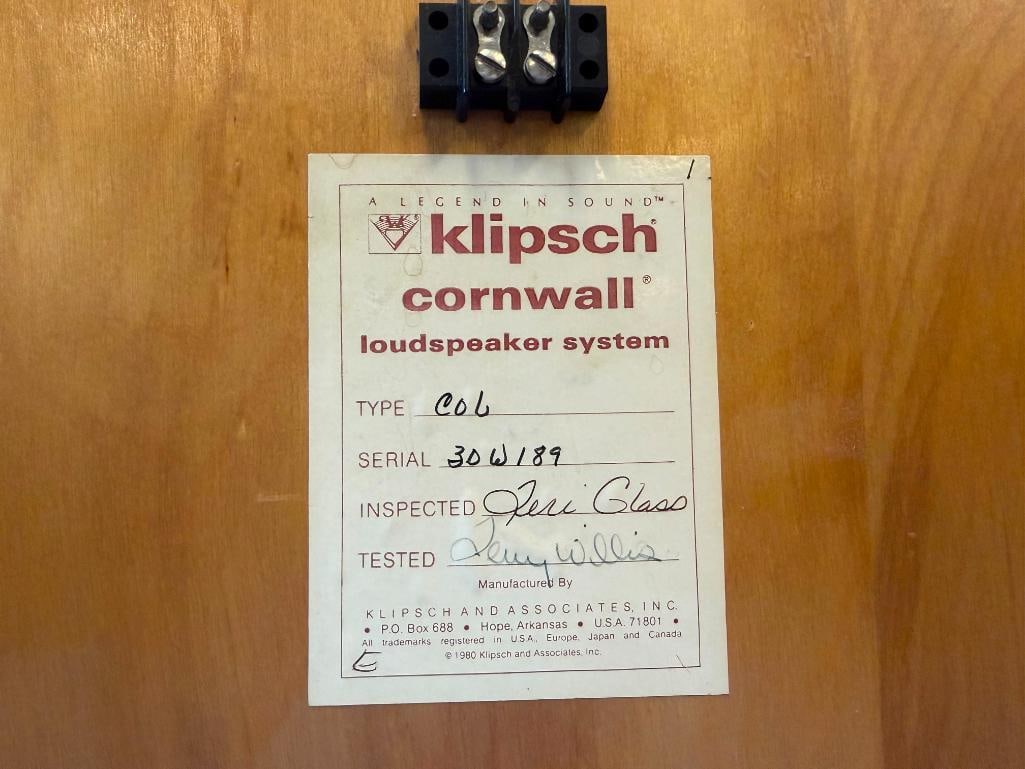 A LEGEND IN SOUND™
klipsch®
cornwall®
loudspeaker system
TYPE COL
SERIAL 30W189
INSPECTED Teri Glass
TESTED Terry Willis
Manufactured By
KLIPSCH AND ASSOCIATES, INC.
• P.O. Box 688 • Hope, Arkansas • U.S.A. 71801 •
All trademarks registered in U.S.A., Europe, Japan and Canada
© 1980 Klipsch and Associates, Inc.
E